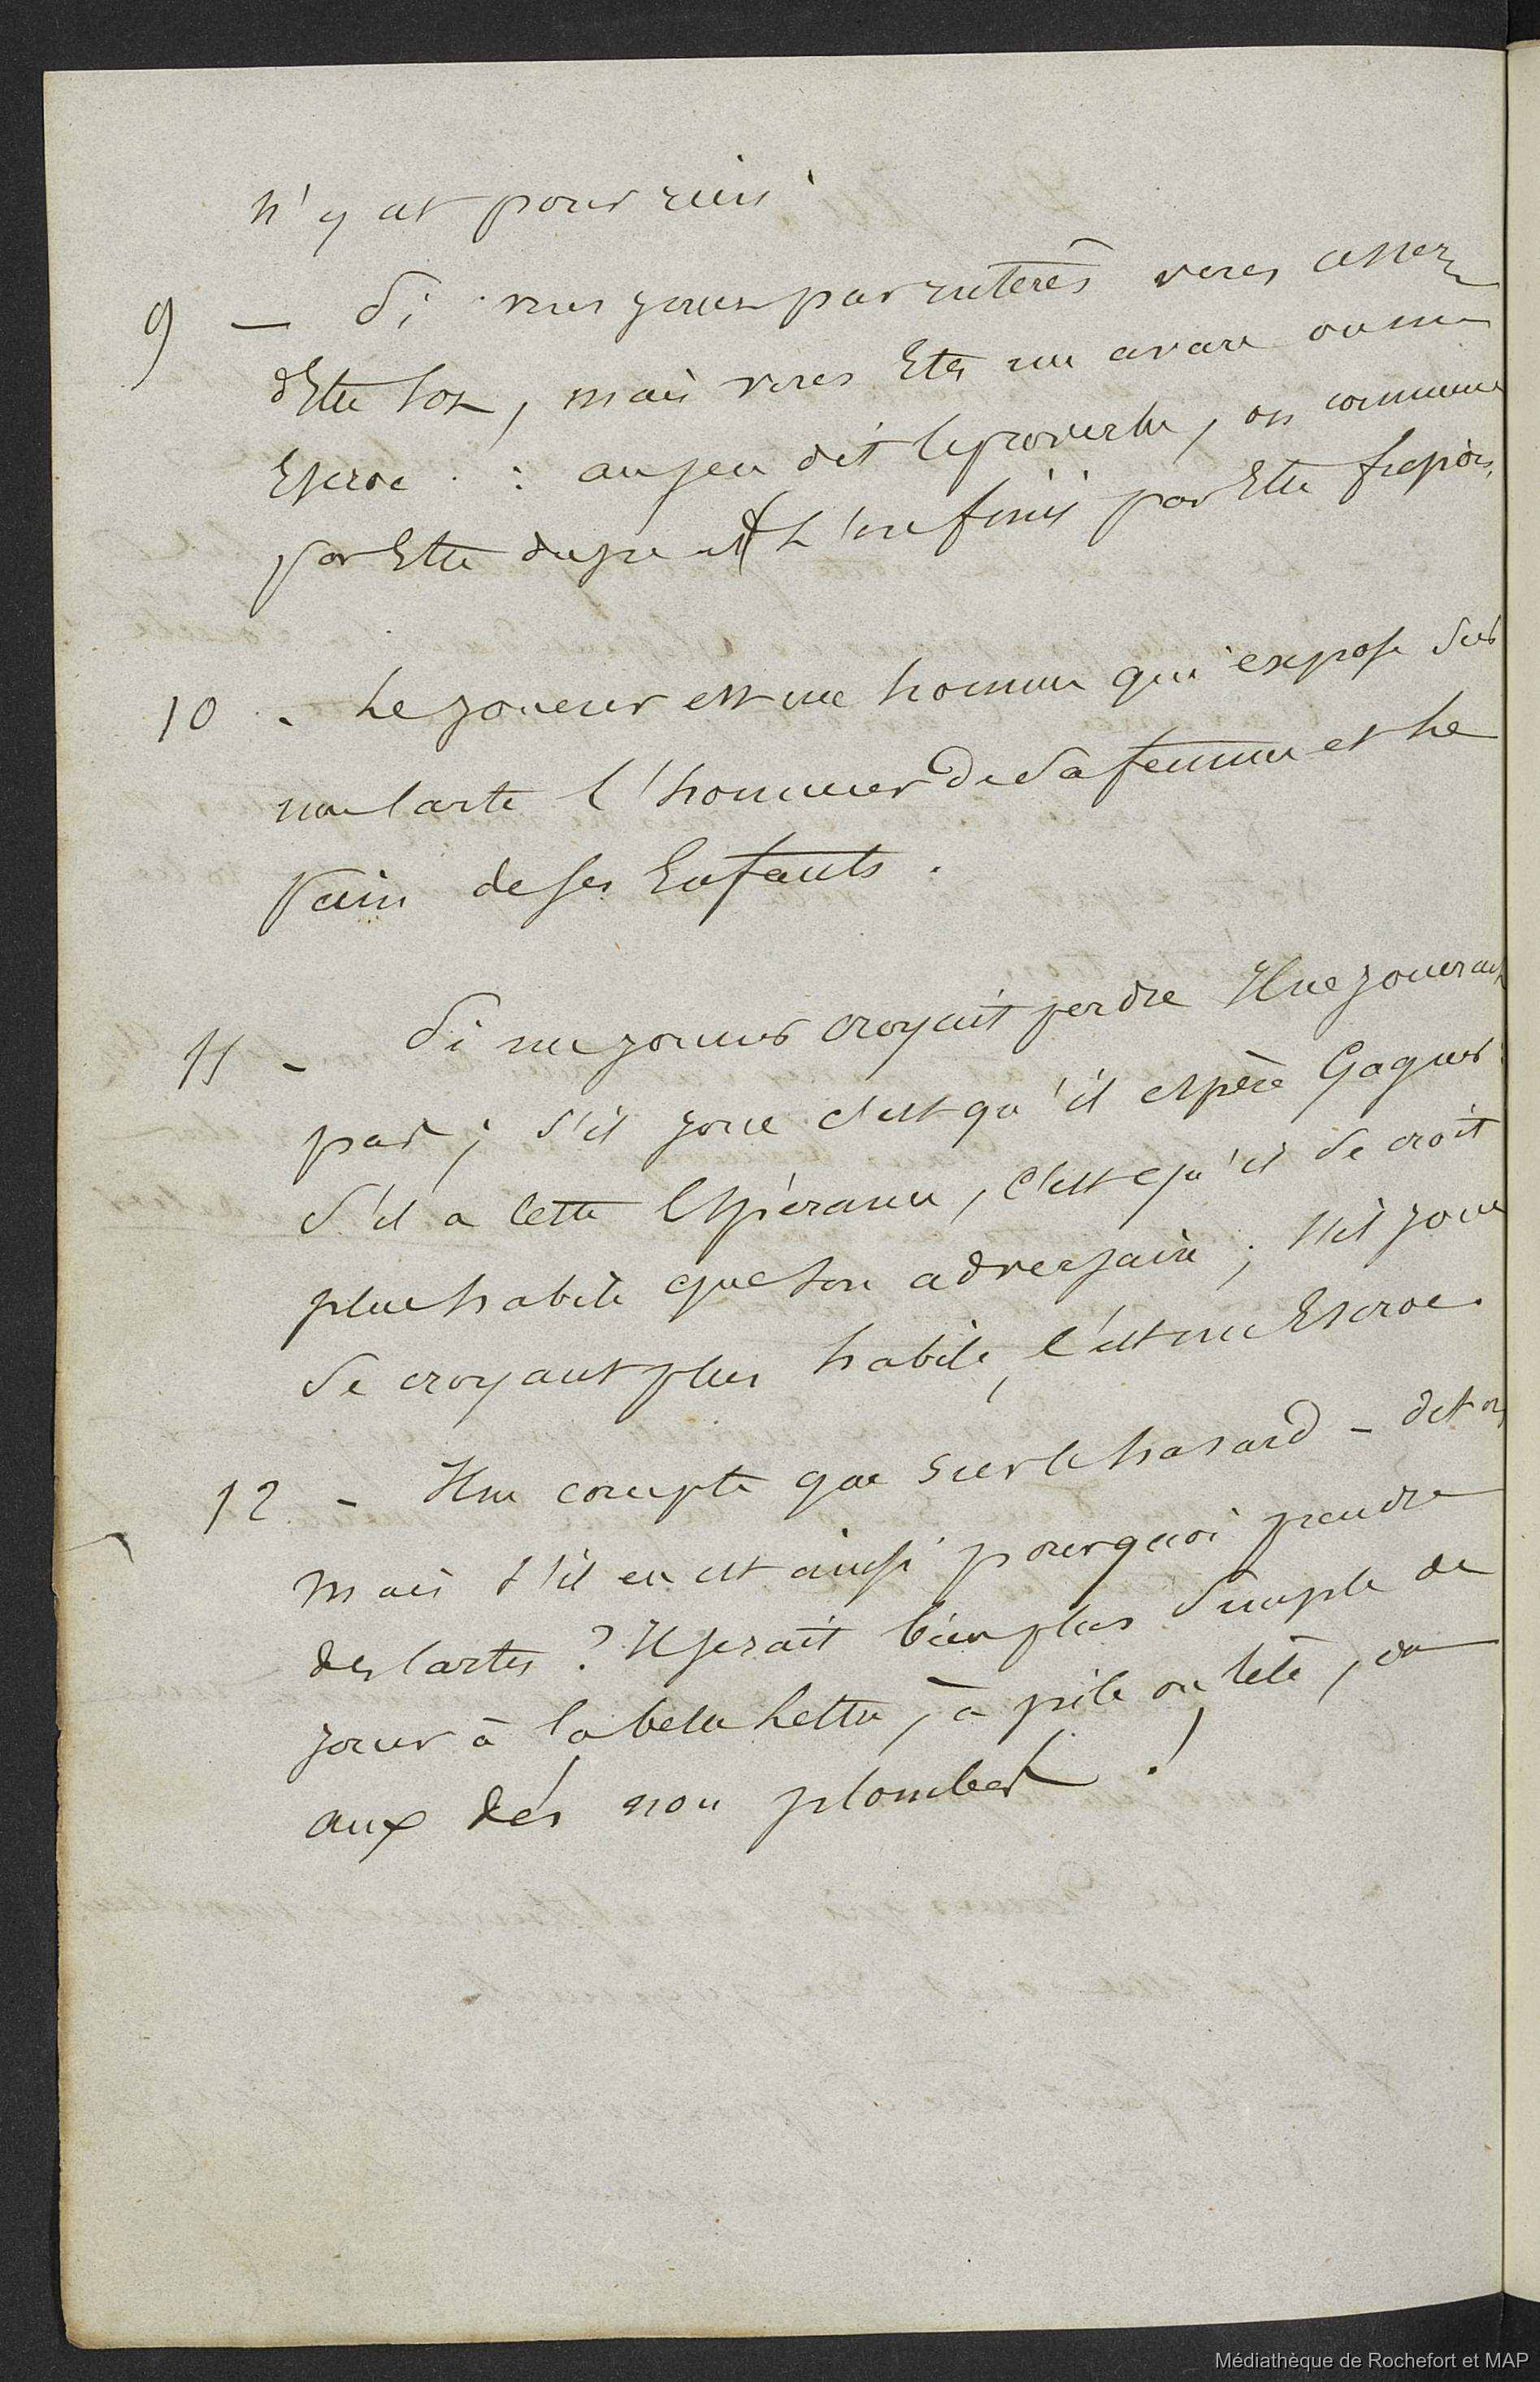 n'y est pour rien
9 — Si vous jouez par intérês vous cessez
d'Etre sot, mais vous Etes un avare ou un
Escroc : au jeu dit le proverbe, on commence
par Etre dupe et l'on finis par Etre fripon.
10 - Le joueur est un homme qui expose sur
une carte l'honneur de sa femme et le
pain de ses Enfants.
11 - Si un joueur croyait perdre Il ne jouerait
pas ; s'il joue c'est qu'il espère Gagner
s'il a cette Espérance, c'est qu'il se croit
plus habile que son adversaire ; s'il joue
se croyant plus habile, c'est un Escroc.
12 - Il ne compte que sur le hasard - dit on
mais s'il en est ainsi pourquoi prendre
des cartes ? Il serait bien plus simple de
jouer à la belle lettre, à pile ou tête, ou
aux dés non plombés !
Médiathèque de Rochefort et MAP